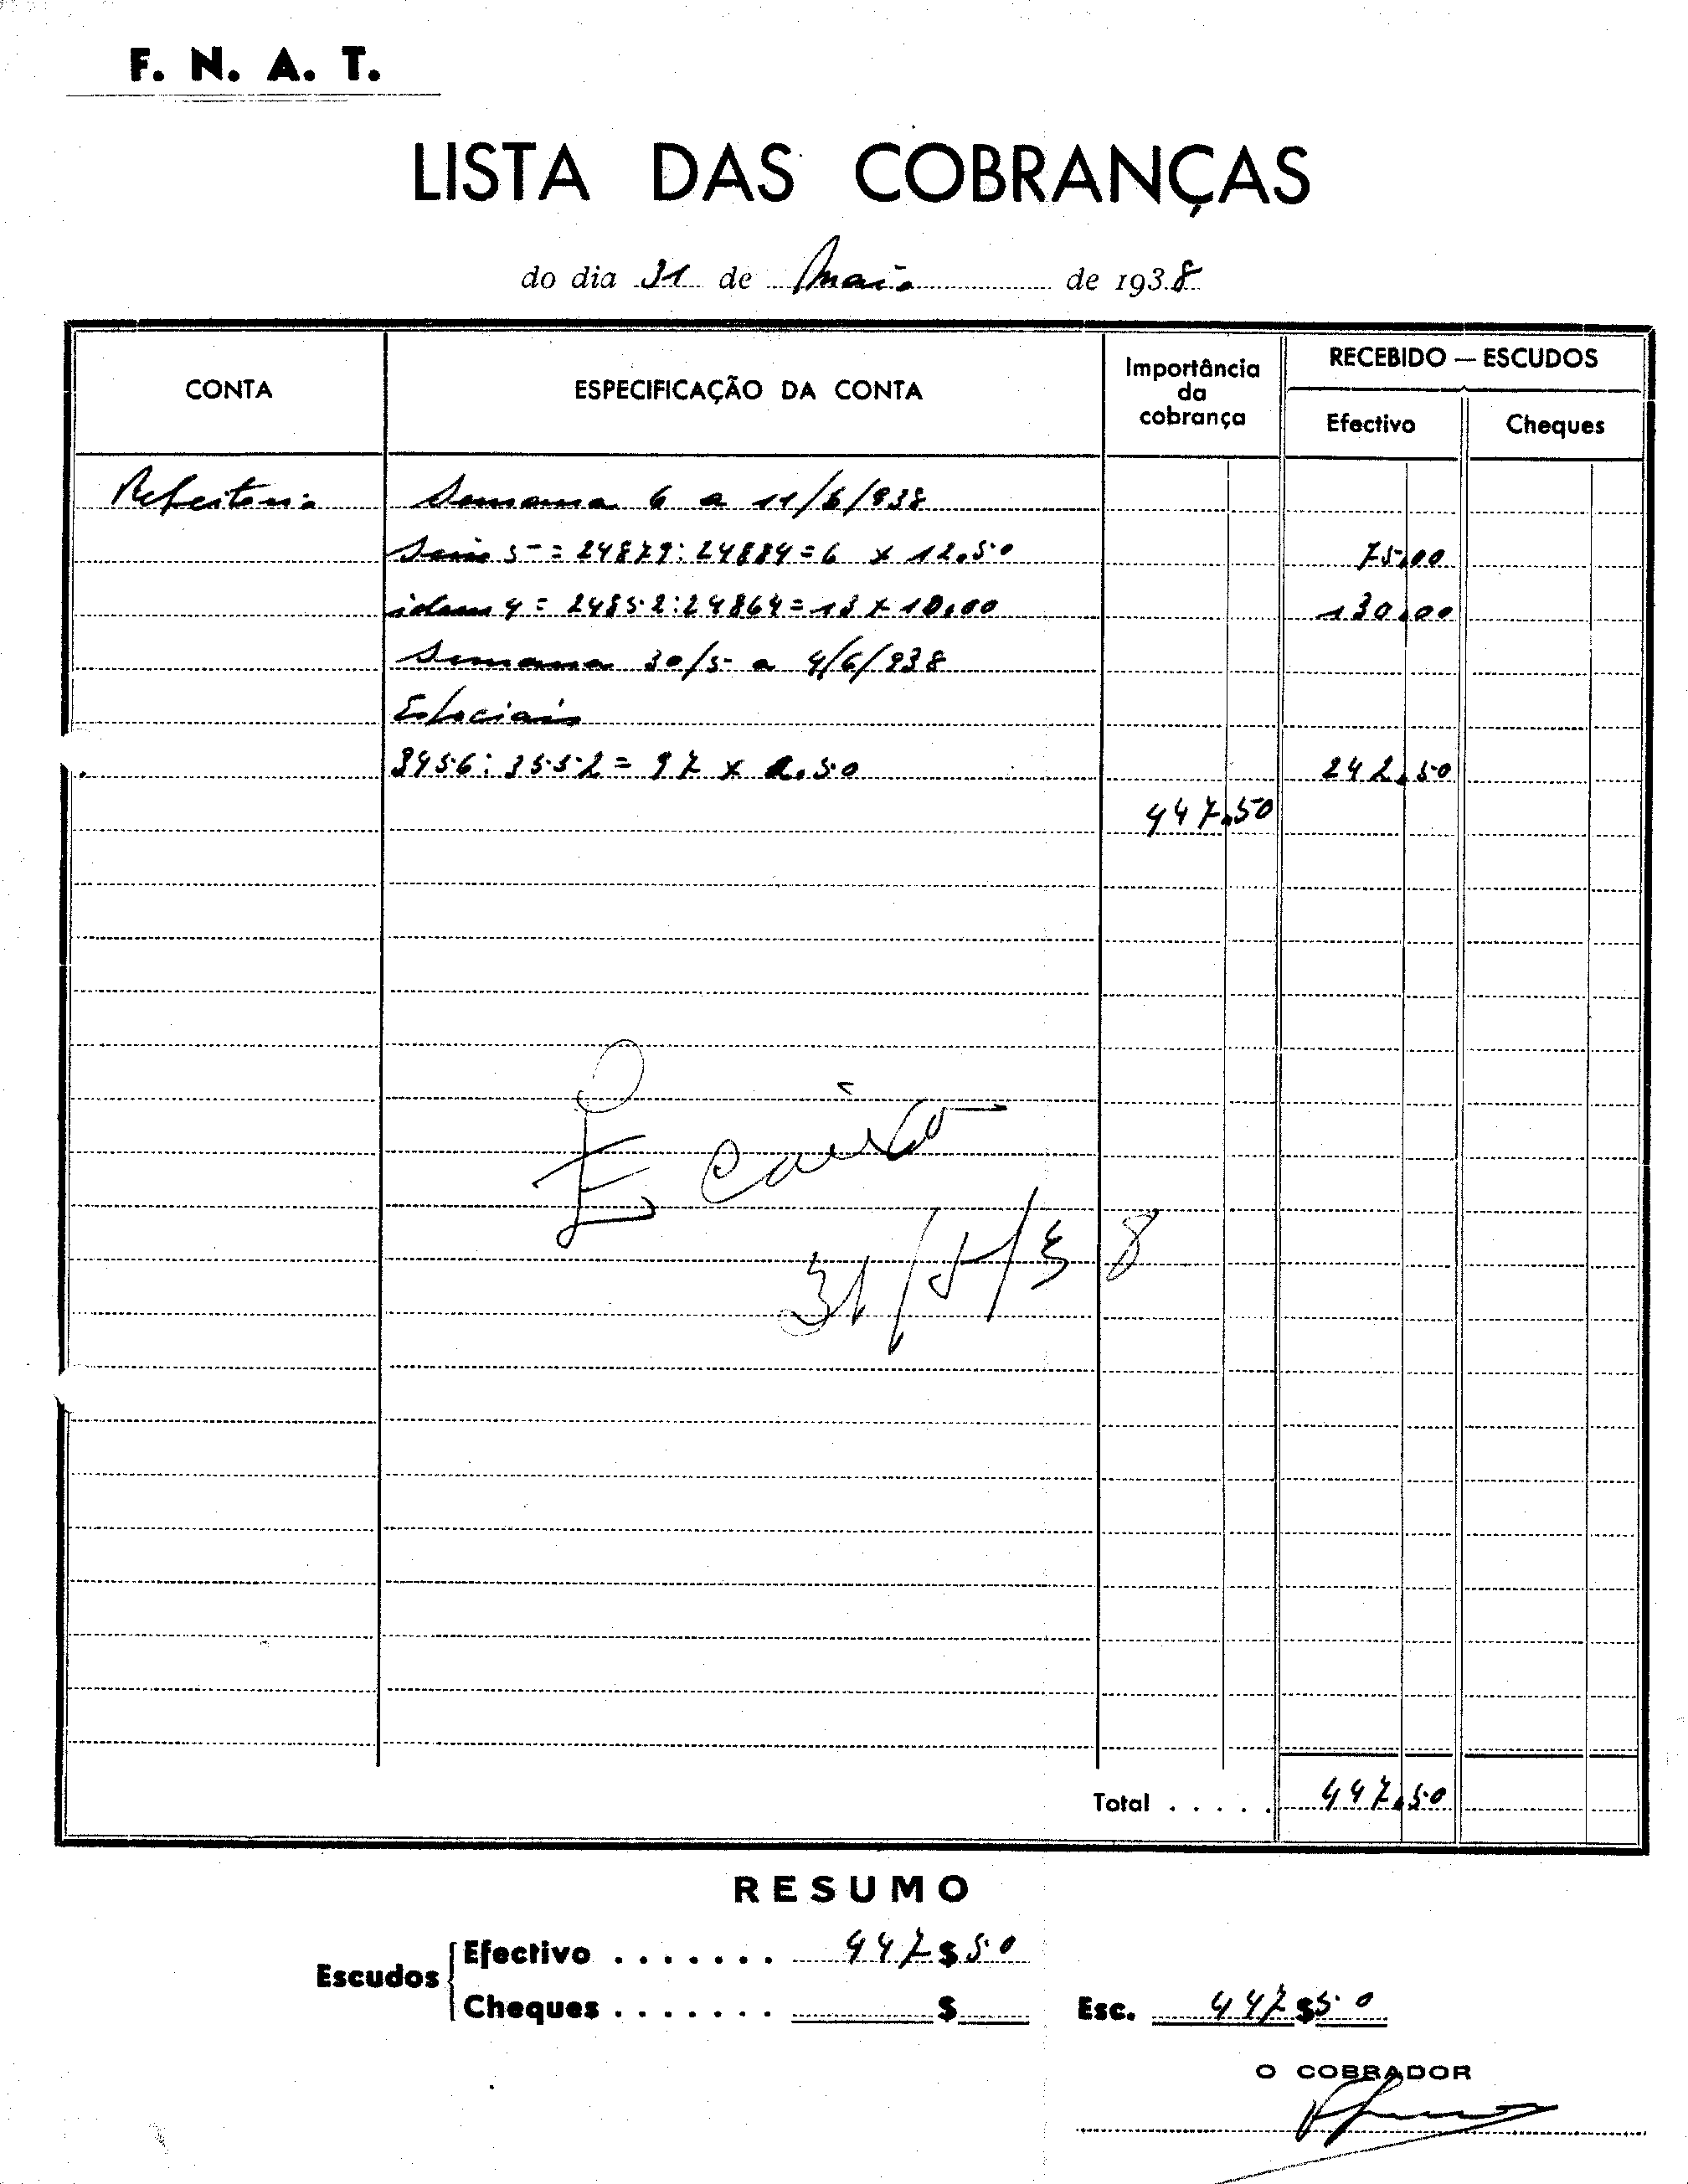 F. N. A. T.
LISTA DAS COBRANÇAS
do dia 31 de Maio de 1938
CONTA
ESPECIFICAÇÃO DA CONTA
Importância
da
cobrança
RECEBIDO — ESCUDOS
Efectivo
Cheques
Refeitorio Semana 6 a 11/6/938
Série 5 = 24879:24884=6 x 12.50 75.00
idem 4 = 24852:24864=13 x 10.00 130.00
Semana 30/5 a 4/6/938
Especiais
3456:3552 = 97 x 2.50 242.50
447.50
31/5/38
Total ..... 447.50
RESUMO
Escudos
Efectivo ....... 447$50
Cheques ....... $
Esc. 447$50
O COBRADOR